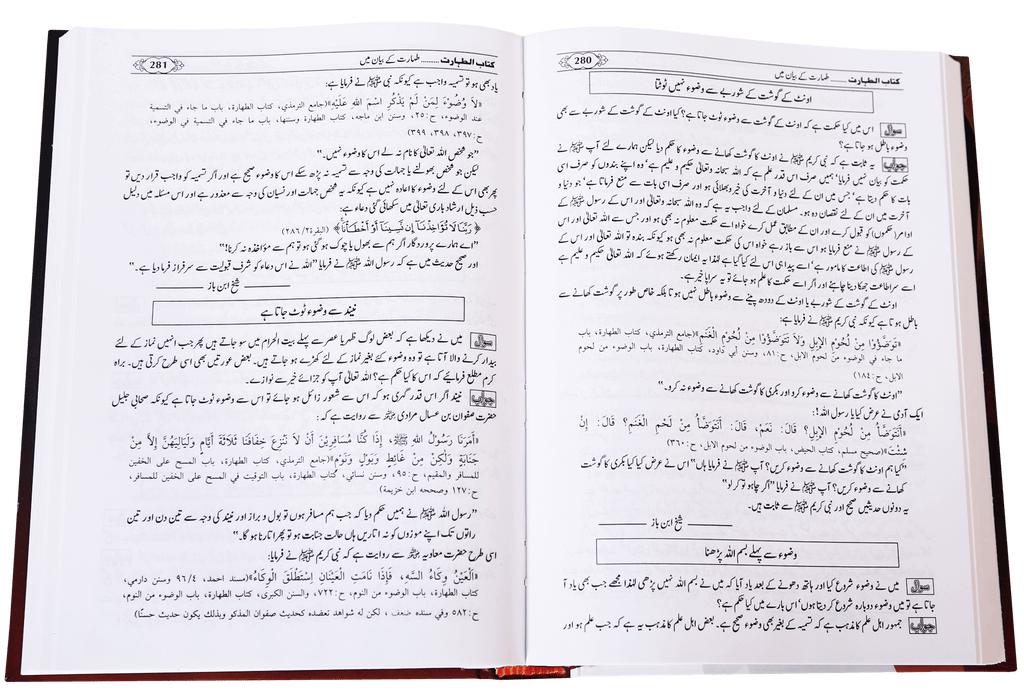 280
كتاب الطهارت ......... طہارت کے بیان میں
اونٹ کے گوشت کے شوربے سے وضوء نہیں ٹوٹتا
سوال اس میں کیا حکمت ہے کہ اونٹ کے گوشت سے وضوء ٹوٹ جاتا ہے؟ کیا اونٹ کے گوشت کے شوربے سے بھی
وضوء باطل ہو جاتا ہے؟
جواب یہ ثابت ہے کہ نبی کریم ﷺ نے اونٹ کا گوشت کھانے سے وضوء کا حکم دیا لیکن ہمارے لئے آپ ﷺ نے
حکمت کو بیان نہیں فرمایا' ہمیں صرف اس قدر علم ہے کہ اللہ سبحانہ وتعالیٰ حکیم و علیم ہے' وہ اپنے بندوں کو صرف اسی
بات کا حکم دیتا ہے' جس میں ان کے لئے دنیا و آخرت کی خیر و بھلائی ہو اور صرف اسی بات سے منع فرماتا ہے' جو دنیا و
آخرت میں ان کے لئے نقصان دہ ہو۔ مسلمان کے لئے واجب یہ ہے کہ وہ اللہ سبحانہ وتعالیٰ اور اس کے رسول ﷺ کے
اوامر (حکموں) کو قبول کرے اور ان کے مطابق عمل کرے خواہ اسے حکمت معلوم نہ بھی ہو اور جس سے اللہ تعالیٰ اور اس
کے رسول ﷺ نے منع فرمایا ہو اس سے باز رہے خواہ اس کی حکمت معلوم نہ بھی ہو کیونکہ بندہ تو اللہ تعالیٰ اور اس کے
رسول ﷺ کی اطاعت کا مامور ہے' اسے پیدا ہی اس لئے کیا گیا ہے لہٰذا یہ ایمان رکھتے ہوئے کہ اللہ تعالیٰ حکیم و علیم ہے
اسے سر اطاعت جھکا دینا چاہئے اور اگر اسے حکمت کا علم ہو جائے تو یہ سراپا خیر ہے۔
اونٹ کے گوشت کے شوربے یا اونٹ کے دودھ پینے سے وضوء باطل نہیں ہوتا بلکہ خاص طور پر گوشت کھانے سے
باطل ہوتا ہے کیونکہ نبی کریم ﷺ نے فرمایا ہے:
«تَوَضَّؤُوا مِنْ لُحُومِ الإِبِلِ وَلاَ تَتَوَضَّؤُوا مِنْ لُحُومِ الْغَنَمِ»(جامع الترمذي، كتاب الطهارة، باب
ما جاء في الوضوء من لحوم الابل، ح:٨١، وسنن أبي داود، كتاب الطهارة، باب الوضوء من لحوم
الابل، ح:١٨٤)
"اونٹ کا گوشت کھانے سے وضوء کرو اور بکری کا گوشت کھانے سے وضوء نہ کرو۔"
ایک آدمی نے عرض کیا یا رسول اللہ!:
«أَتَوَضَّأُ مِنْ لُحُومِ الإِبِلِ؟ قَالَ: نَعَمْ، قَالَ: أَتَتَوَضَّأُ مِنْ لَحْمِ الْغَنَمِ؟ قَالَ: إِنْ
شِئْتَ»(صحيح مسلم، كتاب الحيض، باب الوضوء من لحوم الابل، ح:٣٦٠)
"کیا ہم اونٹ کا گوشت کھانے سے وضوء کریں؟ آپ ﷺ نے فرمایا ہاں" اس نے عرض کیا کیا بکری کا گوشت
کھانے سے وضوء کریں؟ آپ ﷺ نے فرمایا "اگر چاہو تو کر لو"
یہ دونوں حدیثیں صحیح اور نبی کریم ﷺ سے ثابت ہیں۔
شیخ ابن باز
وضوء سے پہلے بسم اللہ پڑھنا
سوال میں نے وضوء شروع کیا اور ہاتھ دھونے کے بعد یاد آیا کہ میں نے بسم اللہ نہیں پڑھی لہٰذا مجھے جب بھی یاد آ
جاتا ہے تو میں وضوء دوبارہ شروع کر دیتا ہوں' اس بارے میں کیا حکم ہے؟
جواب جمہور اہل علم کا مذہب ہے کہ تسمیہ کے بغیر بھی وضوء صحیح ہے۔ بعض اہل علم کا مذہب یہ ہے کہ جب علم ہو اور
281
كتاب الطهارت ......... طہارت کے بیان میں
یاد بھی ہو تو تسمیہ واجب ہے کیونکہ نبی ﷺ نے فرمایا ہے:
«لاَ وُضُوْءَ لِمَنْ لَمْ يَذْكُرِ اسْمَ اللهِ عَلَيْهِ»(جامع الترمذي، كتاب الطهارة، باب ما جاء في التسمية
عند الوضوء، ح:٢٥، وسنن ابن ماجه، كتاب الطهارة وسننها، باب ما جاء في التسمية في الوضوء،
ح:٣٩٧، ٣٩٨، ٣٩٩)
"جو شخص اللہ تعالیٰ کا نام نہ لے اس کا وضوء نہیں۔"
لیکن جو شخص بھولنے یا جہالت کی وجہ سے تسمیہ نہ پڑھ سکے اس کا وضوء صحیح ہے اور اگر تسمیہ کو واجب قرار دیں تو
پھر بھی اس کے لئے وضوء کا اعادہ نہیں ہے کیونکہ یہ شخص جہالت اور نسیان کی وجہ سے معذور ہے اور اس مسئلہ میں دلیل
حسب ذیل ارشاد باری تعالیٰ میں سکھائی گئی دعاء ہے:
﴿رَبَّنَا لَا تُؤَاخِذْنَا إِن نَّسِينَا أَوْ أَخْطَأْنَا﴾ (البقرة٢/٢٨٦)
"اے ہمارے پروردگار اگر ہم سے بھول یا چوک ہو گئی ہو تو ہم سے مؤاخذہ نہ کرنا!"
اور صحیح حدیث میں ہے کہ رسول اللہ ﷺ نے فرمایا "اللہ نے اس دعاء کو شرف قبولیت سے سرفراز فرما دیا ہے۔"
شیخ ابن باز
نیند سے وضوء ٹوٹ جاتا ہے
سوال میں نے دیکھا ہے کہ بعض لوگ ظہر یا عصر سے پہلے بیت الحرام میں سو جاتے ہیں پھر جب انہیں نماز کے لئے
بیدار کرنے والا آتا ہے تو وہ وضوء کئے بغیر نماز کے لئے کھڑے ہو جاتے ہیں۔ بعض عورتیں بھی اسی طرح کرتی ہیں۔ براہ
کرم مطلع فرمائیے کہ اس کا کیا حکم ہے؟ اللہ تعالیٰ آپ کو جزائے خیر سے نوازے۔
جواب نیند اگر اس قدر گہری ہو کہ اس سے شعور زائل ہو جائے تو اس سے وضوء ٹوٹ جاتا ہے کیونکہ صحابی جلیل
حضرت صفوان بن عسال مرادی سے روایت ہے کہ:
«أَمَرَنَا رَسُوْلُ اللهِ ﷺ، إِذَا كُنَّا مُسَافِرِيْنَ أَنْ لاَ نَنْزِعَ خِفَافَنَا ثَلاَثَةَ أَيَّامٍ وَلَيَالِيَهُنَّ إِلاَّ مِنْ
جَنَابَةٍ وَلَكِنْ مِنْ غَائِطٍ وَبَوْلٍ وَنَوْمٍ»(جامع الترمذي، كتاب الطهارة، باب المسح على الخفين
للمسافر والمقيم، ح:٩٥، وسنن نسائي، كتاب الطهارة، باب التوقيت في المسح على الخفين للمسافر،
ح:١٢٧ وصححه ابن خزيمة)
"رسول اللہ ﷺ نے ہمیں حکم دیا کہ جب ہم مسافر ہوں تو بول و براز اور نیند کی وجہ سے تین دن اور تین
راتوں تک اپنے موزوں کو نہ اتاریں ہاں حالت جنابت ہو تو پھر اتارنا ہو گا۔"
اسی طرح حضرت معاویہ سے روایت ہے کہ نبی کریم ﷺ نے فرمایا:
«الْعَيْنُ وِكَاءُ السَّهِ، فَإِذَا نَامَتِ الْعَيْنَانِ اسْتَطْلَقَ الْوِكَاءُ»(مسند احمد، ٤/ ٩٦ وسنن دارمي،
كتاب الطهارة، باب الوضوء من النوم، ح:٧٢٢، والسنن الكبرى، كتاب الطهارة، باب الوضوء من النوم،
ح:٥٨٢ وفي سنده ضعف ، لكن له شواهد تعضده كحديث صفوان المذكور وبذلك يكون حديث حسنًا)